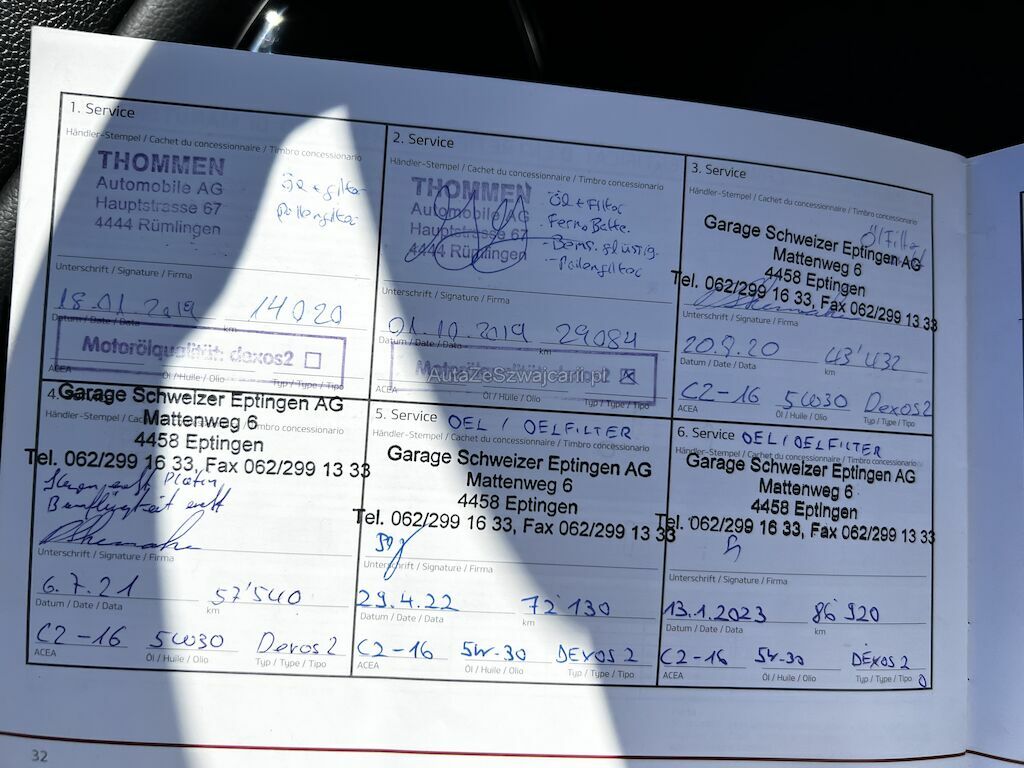 1. Service
Händler-Stempel / Cachet du concessionnaire / Timbro concessionario
THOMMEN
Automobile AG
Hauptstrasse 67
4444 Rümlingen
Öl + filter
Pollenfilter
Unterschrift / Signature / Firma
18.01.2019 14020
Datum / Date / Data km
Motorölqualität: dexos2
ACEA Öl / Huile / Olio Typ / Type / Tipo
2. Service
Händler-Stempel / Cachet du concessionnaire / Timbro concessionario
THOMMEN
Automobile AG
Hauptstrasse 67
4444 Rümlingen
Öl + Filter
- Pollenfilter
Unterschrift / Signature / Firma
01.10.2019 29084
Datum / Date / Data km
AutaZeSzwajcarii.pl
ACEA Öl / Huile / Olio Typ / Type / Tipo
3. Service
Händler-Stempel / Cachet du concessionnaire / Timbro concessionario
Garage Schweizer Eptingen AG
Mattenweg 6
4458 Eptingen
Tel. 062/299 16 33, Fax 062/299 13 33
Unterschrift / Signature / Firma
20.8.20 43'432
Datum / Date / Data km
C2-16 5W30 Dexos2
ACEA Öl / Huile / Olio Typ / Type / Tipo
4.
Garage Schweizer Eptingen AG
Händler-Stempel / Cachet du concessionnaire / Timbro concessionario
Mattenweg 6
4458 Eptingen
Tel. 062/299 16 33, Fax 062/299 13 33
Unterschrift / Signature / Firma
6.7.21 57'540
Datum / Date / Data km
C2-16 5W30 Dexos2
ACEA Öl / Huile / Olio Typ / Type / Tipo
5. Service OEL / OELFILTER
Händler-Stempel / Cachet du concessionnaire / Timbro concessionario
Garage Schweizer Eptingen AG
Mattenweg 6
4458 Eptingen
Tel. 062/299 16 33, Fax 062/299 13 33
Unterschrift / Signature / Firma
29.4.22 72'130
Datum / Date / Data km
C2-16 5W-30 DEXOS2
ACEA Öl / Huile / Olio Typ / Type / Tipo
6. Service OEL / OELFILTER
Händler-Stempel / Cachet du concessionnaire / Timbro concessionario
Garage Schweizer Eptingen AG
Mattenweg 6
4458 Eptingen
Tel. 062/299 16 33, Fax 062/299 13 33
Unterschrift / Signature / Firma
13.1.2023 86'920
Datum / Date / Data km
C2-16 5W-30 DEXOS2
ACEA Öl / Huile / Olio Typ / Type / Tipo
32